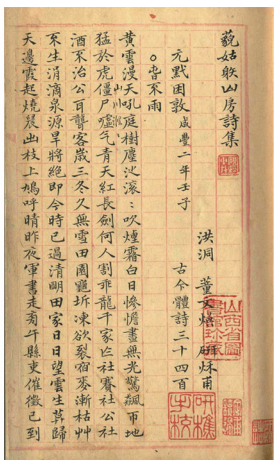 藐姑䠶山房詩集
洪洞 董文煥 硏秌甫
元黓困敦 咸豐二年壬子 古今體詩三十四首
○苦不雨
黄雲漫天吼庭樹塵沱滚〻吹煙霧白日慘憺晝無光驚飆帀地
猛於虎僵尸虚气青天紅長劍何人割乖龍千家亾社賽社公社
酒不治公耳聾客歲三冬久無雪田園龜坼凍欲裂宿麥漸枯艸
不生涓滴泉源旱將絶即今時已過清明田家日日望雲生莫歸
天邊霞起燒晨出枝上鳩呼晴昨夜軍書走㫄午縣吏催徵已到
研樵手校